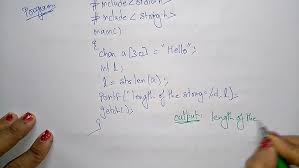 Program:
#include<stdio.h>
#include<string.h>
main()
{
char a[30]="Hello";
int l;
l=strlen(a);
printf("length of the string=%d,l);
getch();
}
output: length of the